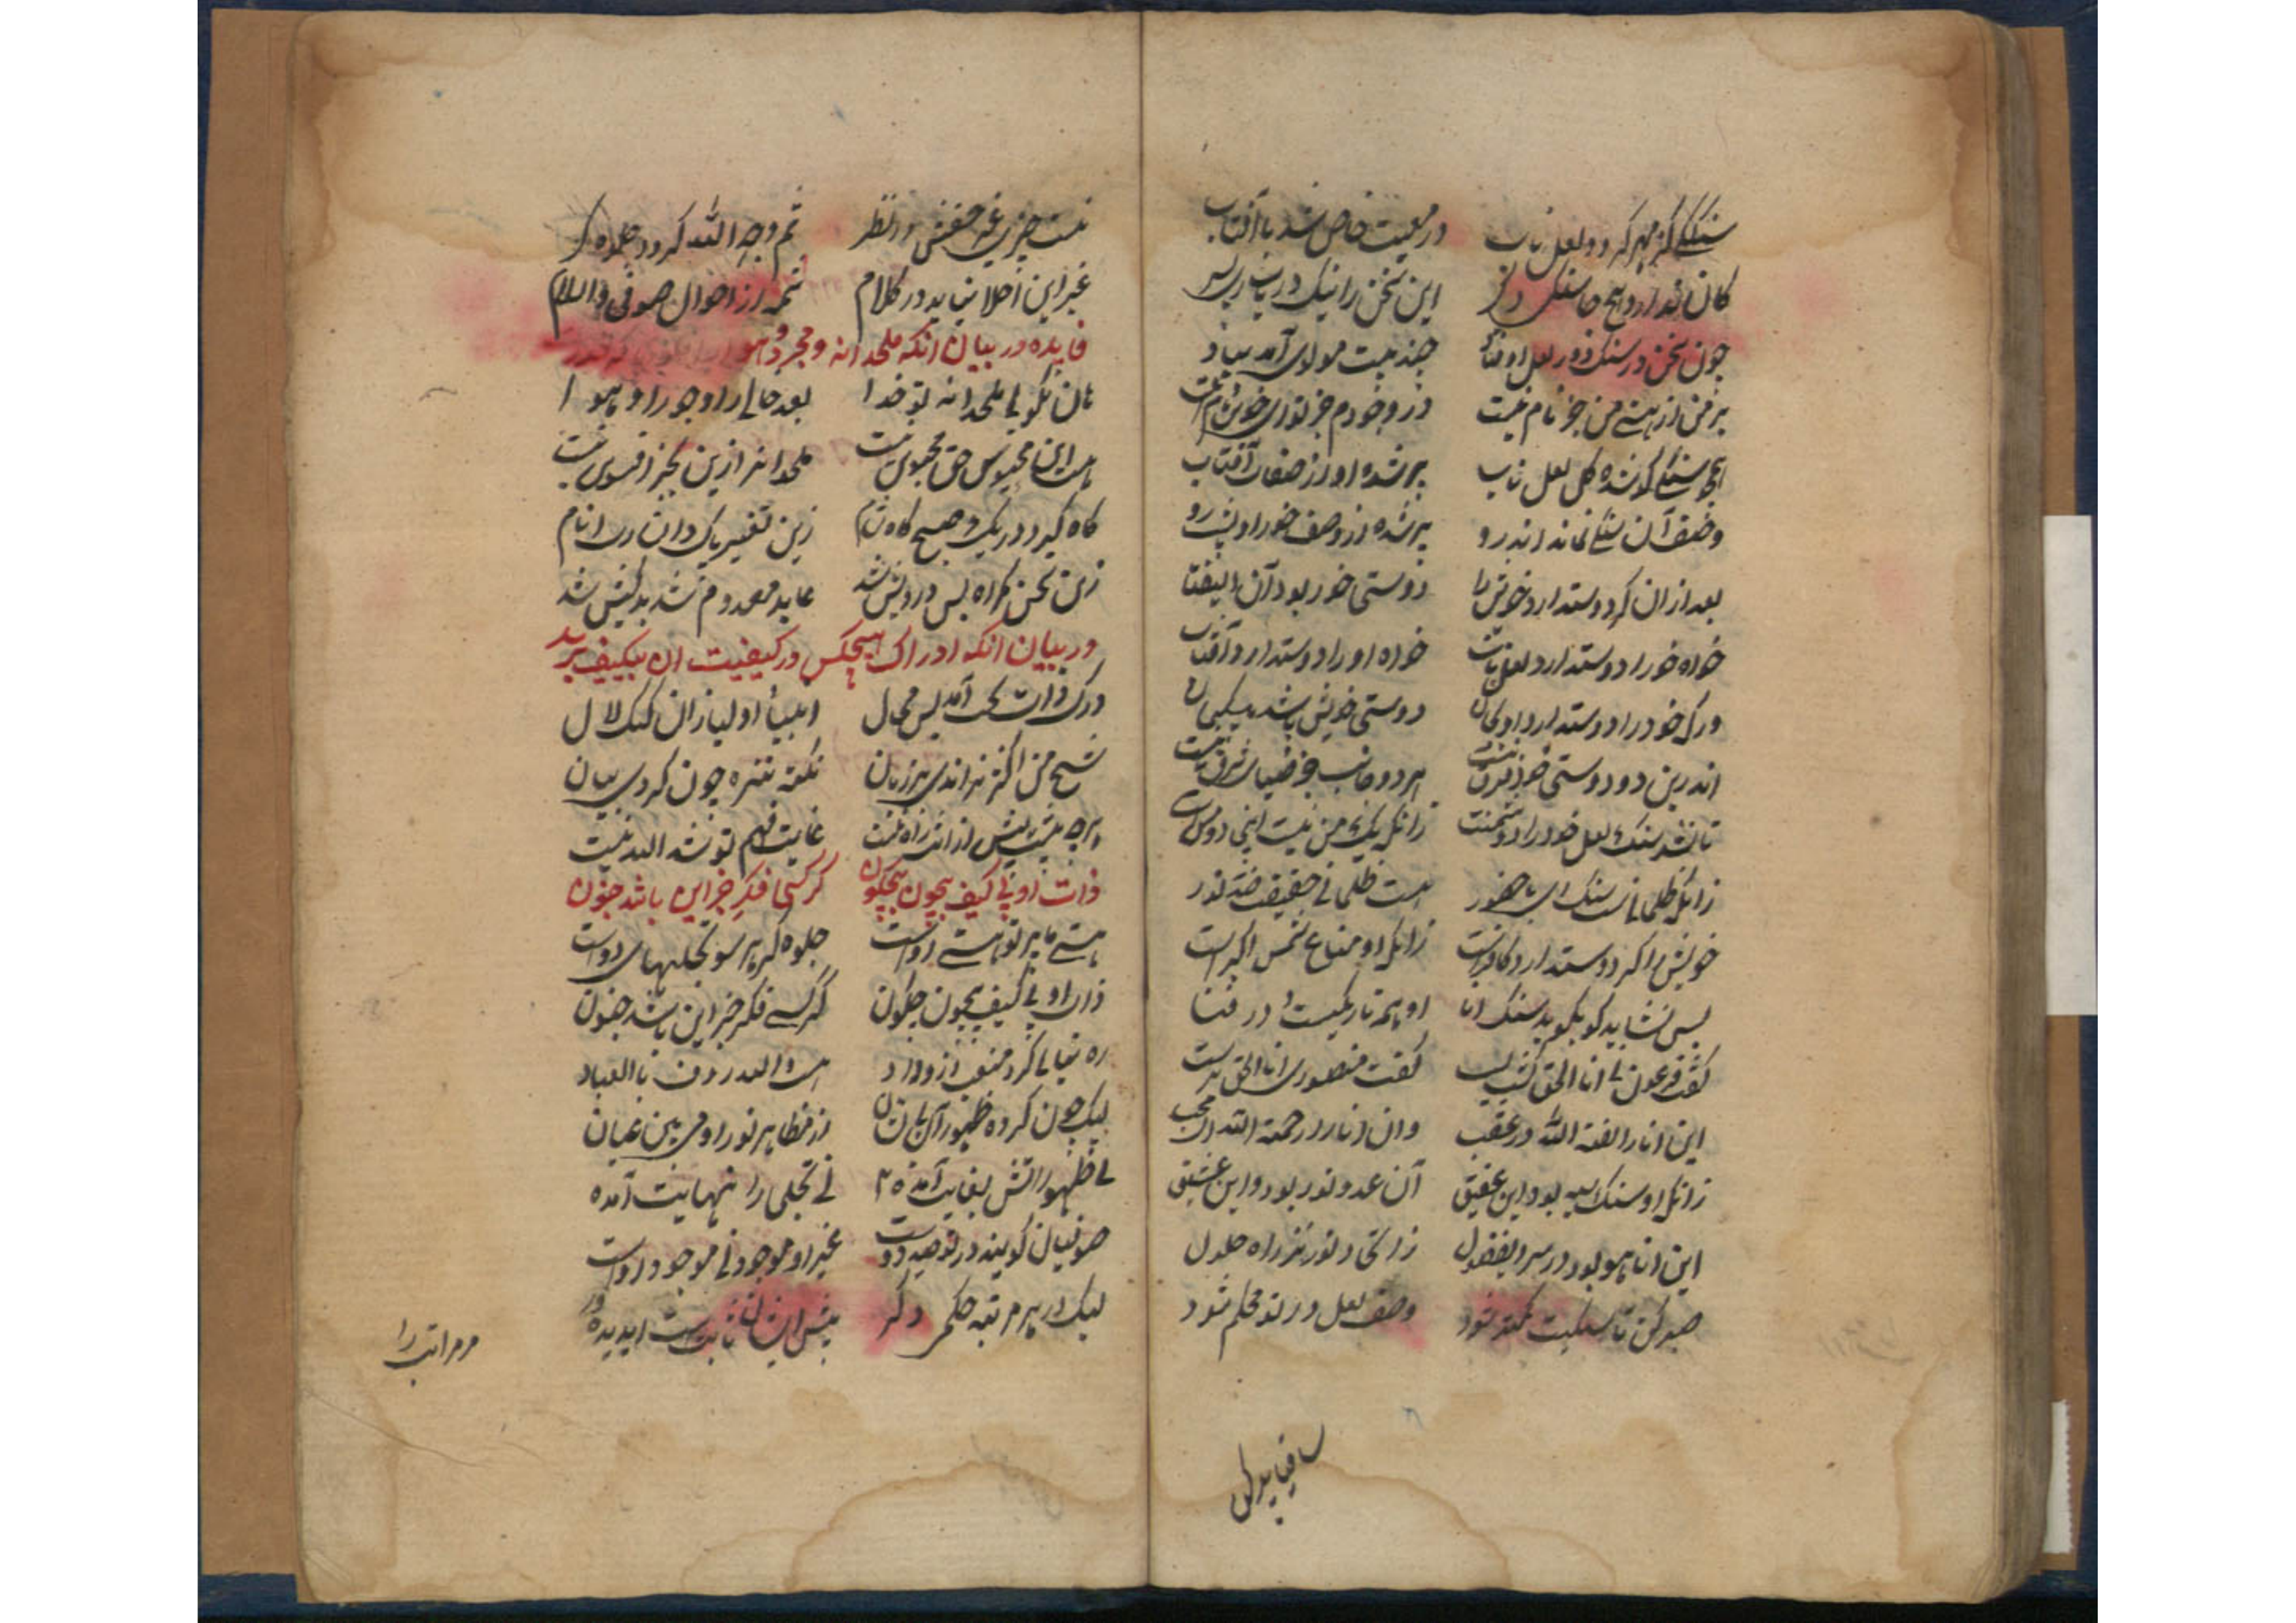 سنگ کز مهر گردد لعل ناب در معیت خاص شد با آفتاب
کان ندارد هیچ جا سنگ دگر این سخن را نیک دریاب ای پسر
چون سخن در سنگ و در لعل اوفتاد مولوی آمد بیاد
بر من از هستی من جز نام نیست در وجودم جز تو ای خوش کام نیست
همچو سنگی کو شده کل لعل ناب پر شده او از صفات آفتاب
وصف آن سنگی نماند اندرو پر شده از وصف خور او پشت و رو
بعد از آن گر دوست دارد خویش را دوستی خور بود آن ای فتا
خواه خود را دوست دارد لعل ناب خواه او را دوست دارد آفتاب
ور که خود را دوست دارد او بجان دوستی خویش باشد بیگمان
اندرین دو دوستی خود فرق نیست هر دو جانب جز ضیای شرق نیست
تا نشد سنگ لعل خود را دشمنست زانکه یک من نیست اینجا دو منست
زانکه ظلمانیست سنگ ای با حضور هست ظلمانی حقیقت ضد نور
خویش را گر دوست دارد کافرست زانکه او مناع شمس اکبرست
پس نشاید کو بگوید سنگ انا او همه تاریکیست و در فنا
گفت فرعونی انا الحق گشت پست گفت منصوری انا الحق برست
این انا را لعنة الله در عقب وان انا را رحمة الله ای محب
زانکه او سنگ سیه بود این عقیق آن عدو نور بود و این عشیق
این انا هو بود در سر ای فضول ز اتحاد نور نز راه حلول
صبر کن تا سنگیت کمتر شود وصف لعل در تو محکم شود
نیست چیزی غیر حقش در نظر ثم وجه الله کرده جلوه گر
غیر این اصلا نیاید در کلام شمه از احوال صوفی والسلام
فایده در بیان انکه ملحدانه
نان نگویی ملحدانه تو خدا بعد
هست این محبوس حق ملحدانه ازین
گاه گیرد در یک و صبح گاه شام زین تغییر پاک دان رب انام
زین سخن گمراه بس درویش شد عابد معدوم شد بدکیش شد
در بیان انکه ادراک هیچکس در کیفیت ان بیکیف
درک ذات بحت آمد بس محال انبیا و اولیا زان گنگ لال
شیخ من اکثر براندی بر زبان نکته تنزه چون کردی بیان
هرچه پیش تو پیش ازان راه نیست غایت فهم تو شد الله نیست
ذات او بی کیف بیچون بیچگون گر کسی فکر جز این باشد جنون
هستی ما پرتو هستی اوست جلوه گر هر سو تجلیهای دوست
ذات او بی کیف بیچون چگون گر کسی فکر جز این باشد جنون
هست والله رؤف بالعباد
لیک چون کرده ظهور آن از مظاهر نور او می بین عیان
نی ظهوراتش بغایت آمده نی تجلی را نهایت آمده
صوفیان گویند در توحید دوست غیر او موجود نی موجود اوست
لیک در هر مرتبه حکم دگر پیش ایشان ثابتست ای دیده ور